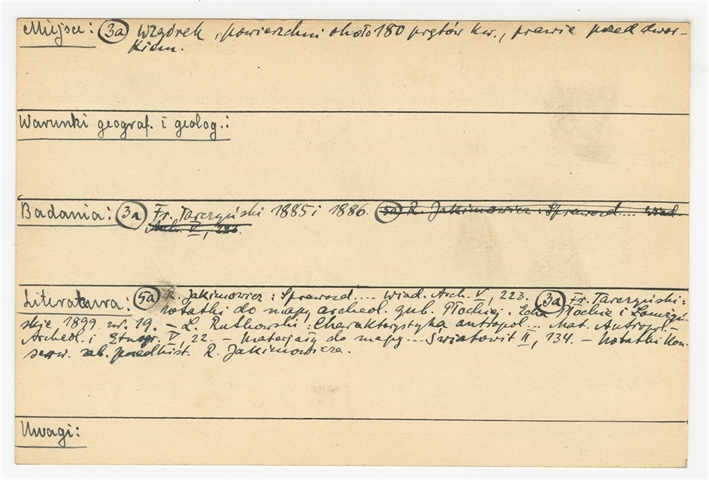 Miejsce: (3a) Wzgórek, powierzchni około 180 prętów kw., prawie przed dwor-
kiem.
Warunki geograf. i geolog.:
Badania: (3a) Fr. Tarczyński 1885 i 1886. (5a) R. Jakimowicz: Sprawozd.... Wiad.
Arch. V, 223.
Literatura: (5a) R. Jakimowicz: Sprawozd.... Wiad. Arch. V, 223. (3a) Fr. Tarczyński:
notatki do mapy archeol. gub. Płockiej. Echa Płockie i Łomżyń-
skie 1899. nr. 19. – L. Rutkowski: Charakterystyka antropol... Mat. Antropol.-
Archeol. i Etnogr. V, 22. – Materjały do mapy... Światowit II, 134. – Notatki kon-
serw. zab. przedhist. R. Jakimowicza.
Uwagi: